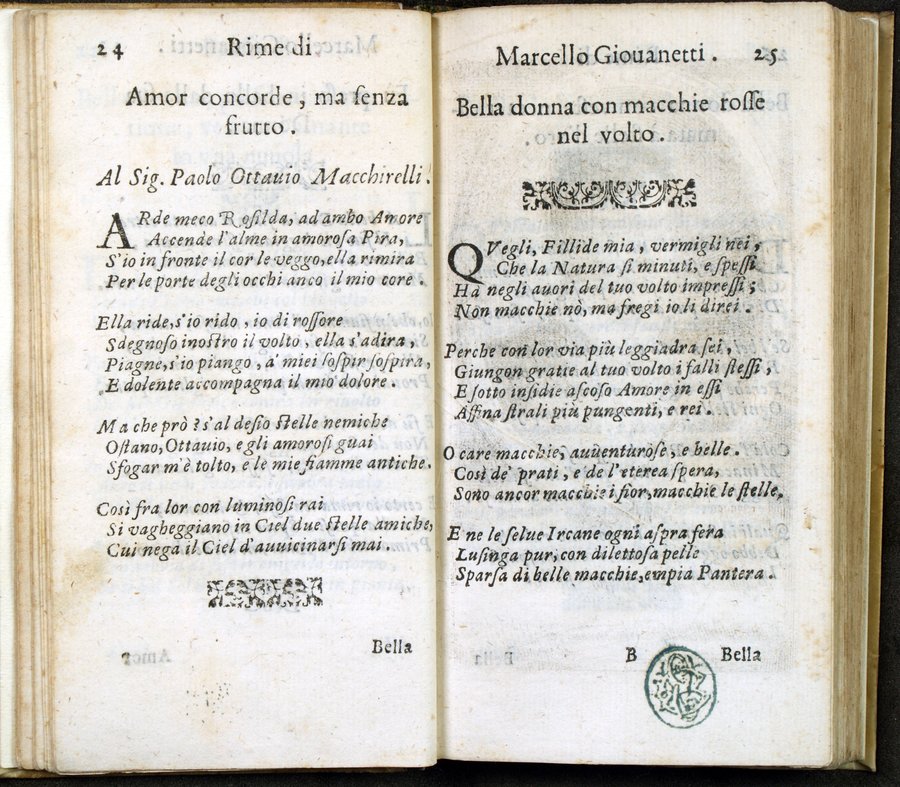 24 Rime di
Amor concorde, ma ſenza
frutto.
Al Sig. Paolo Ottauio Macchirelli.
ARde meco Roſilda, ad ambo Amore
Accende l'alme in amoroſa Pira,
S'io in fronte il cor le veggo, ella rimira
Per le porte degli occhi anco il mio core.
Ella ride, s'io rido, io di roſſore
Sdegnoſo inoſtro il volto, ella s'adira,
Piagne, s'io piango, a' miei ſoſpir ſoſpira,
E dolente accompagna il mio dolore.
Ma che prò? s'al deſio ſtelle nemiche
Oſtano, Ottauio, e gli amoroſi guai
Sfogar m'è tolto, e le mie fiamme antiche.
Così fra lor con luminoſi rai
Si vagheggiano in Ciel due ſtelle amiche,
Cui nega il Ciel d'auuicinarſi mai.
Bella
Marcello Giouanetti. 25
Bella donna con macchie roſſe
nel volto.
QVegli, Fillide mia, vermigli nei,
Che la Natura ſi minuti, e ſpeſſi
Ha negli auori del tuo volto impreſſi;
Non macchie nò, ma fregi io li direi.
Perche con lor via più leggiadra ſei,
Giungon gratie al tuo volto i falli ſteſſi,
E ſotto inſidie aſcoſo Amore in eſſi
Affina ſtrali più pungenti, e rei.
O care macchie, auuenturoſe, e belle.
Così de' prati, e de l'eterea ſpera,
Sono ancor macchie i fior, macchie le ſtelle.
E ne le ſelue Ircane ogni aſpra fera
Luſinga pur, con dilettoſa pelle
Sparſa di belle macchie, empia Pantera.
B Bella